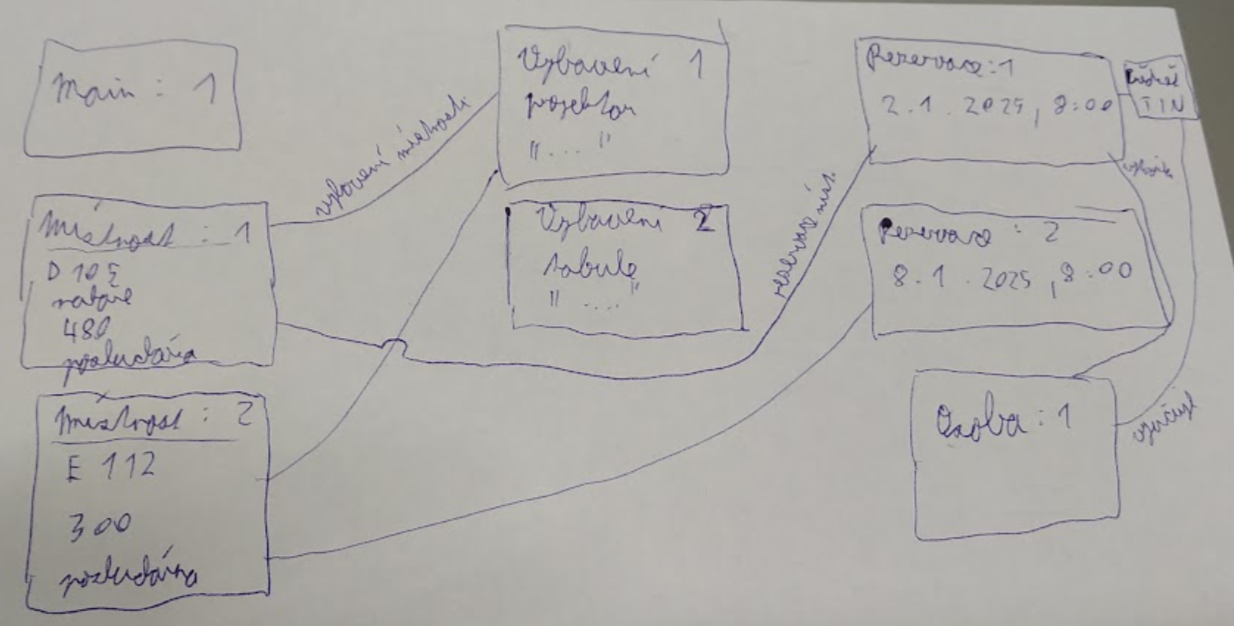 Main : 1
Místnost : 1
D 105
480
posluchárna
Místnost : 2
E 112
300
posluchárna
vybavení místnosti
Vybavení 1
projektor
" .... "
Vybavení 2
tabule
" .... "
rezervace míst.
Rezervace : 1
2.1.2025, 8:00
Rezervace : 2
8.1.2025, 8:00
IIN
Osoba : 1
vyučující